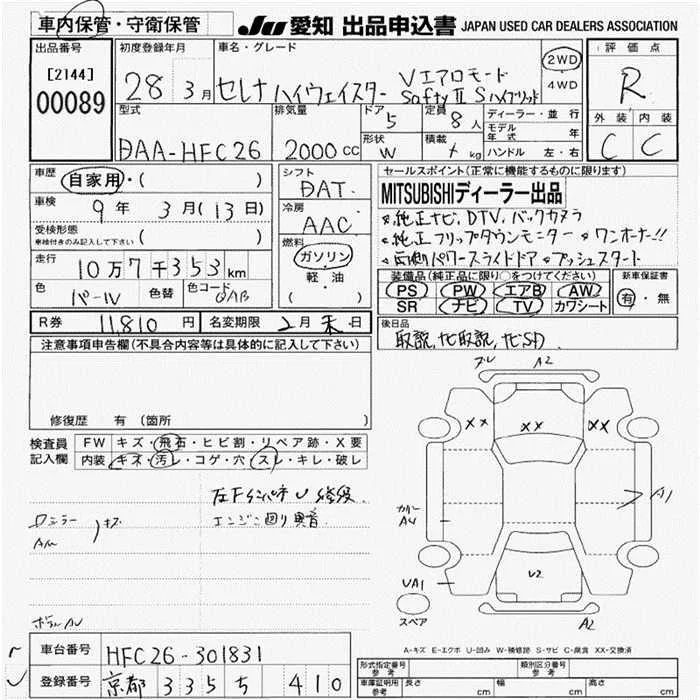 車内保管・守衛保管
JU 愛知 出品申込書 JAPAN USED CAR DEALERS ASSOCIATION
出品番号
[2144]
00089
初度登録年月
28 3月
車名・グレード
セレナ ハイウェイスター Vエアロモード
Safty II S ハイブリッド
2WD
4WD
評価点
R
外装 内装
C C
型式
DAA-HFC26
排気量
2000 CC
ドア
5
定員
8人
形状
W
積載
kg
ディーラー・並行
モデル年式 年
ハンドル 左・右
車歴
自家用・( )
車検
9年 3月(13日)
受検形態
車検付きのみ記入して下さい ( )
走行
10万7千353km
色
パール
色替
色コード
QAB
シフト
DAT
冷房
AAC
燃料
ガソリン
軽・油
( )
セールスポイント(正常に機能するものに限ります)
MITSUBISHIディーラー出品
純正ナビ、DTV、バックカメラ
純正フリップダウンモニター ワンオーナー!!
両側パワースライドドア プッシュスタート
装備品(純正品に限り○をつけてください)
PS PW エアB AW
SR ナビ TV カワシート
新車保証書
有・無
R券 11,810円
名変期限 2月末日
後日品
取説, ナビ取説, ナビSD
注意事項申告欄(不具合内容等は具体的に記入して下さい)
修復歴 有 (箇所 )
検査員
記入欄
FW キズ・飛石・ヒビ割・リペア跡・X要
内装 キズ・汚レ・コゲ・穴・スレ・キレ・破レ
エンジン回り異音
キズ
A2
XX XX XX
A1
A4
U2
UA1
スペア
A2
A-キズ E-エクボ U-凹み W-補修跡 S-サビ C-腐食 XX-交換済
車台番号 HFC26-301831
登録番号 京都 335 ち 410
形式指定番号
参考
類別区分番号
参考
車庫証明用
参考
長さ cm 幅 cm 高さ cm